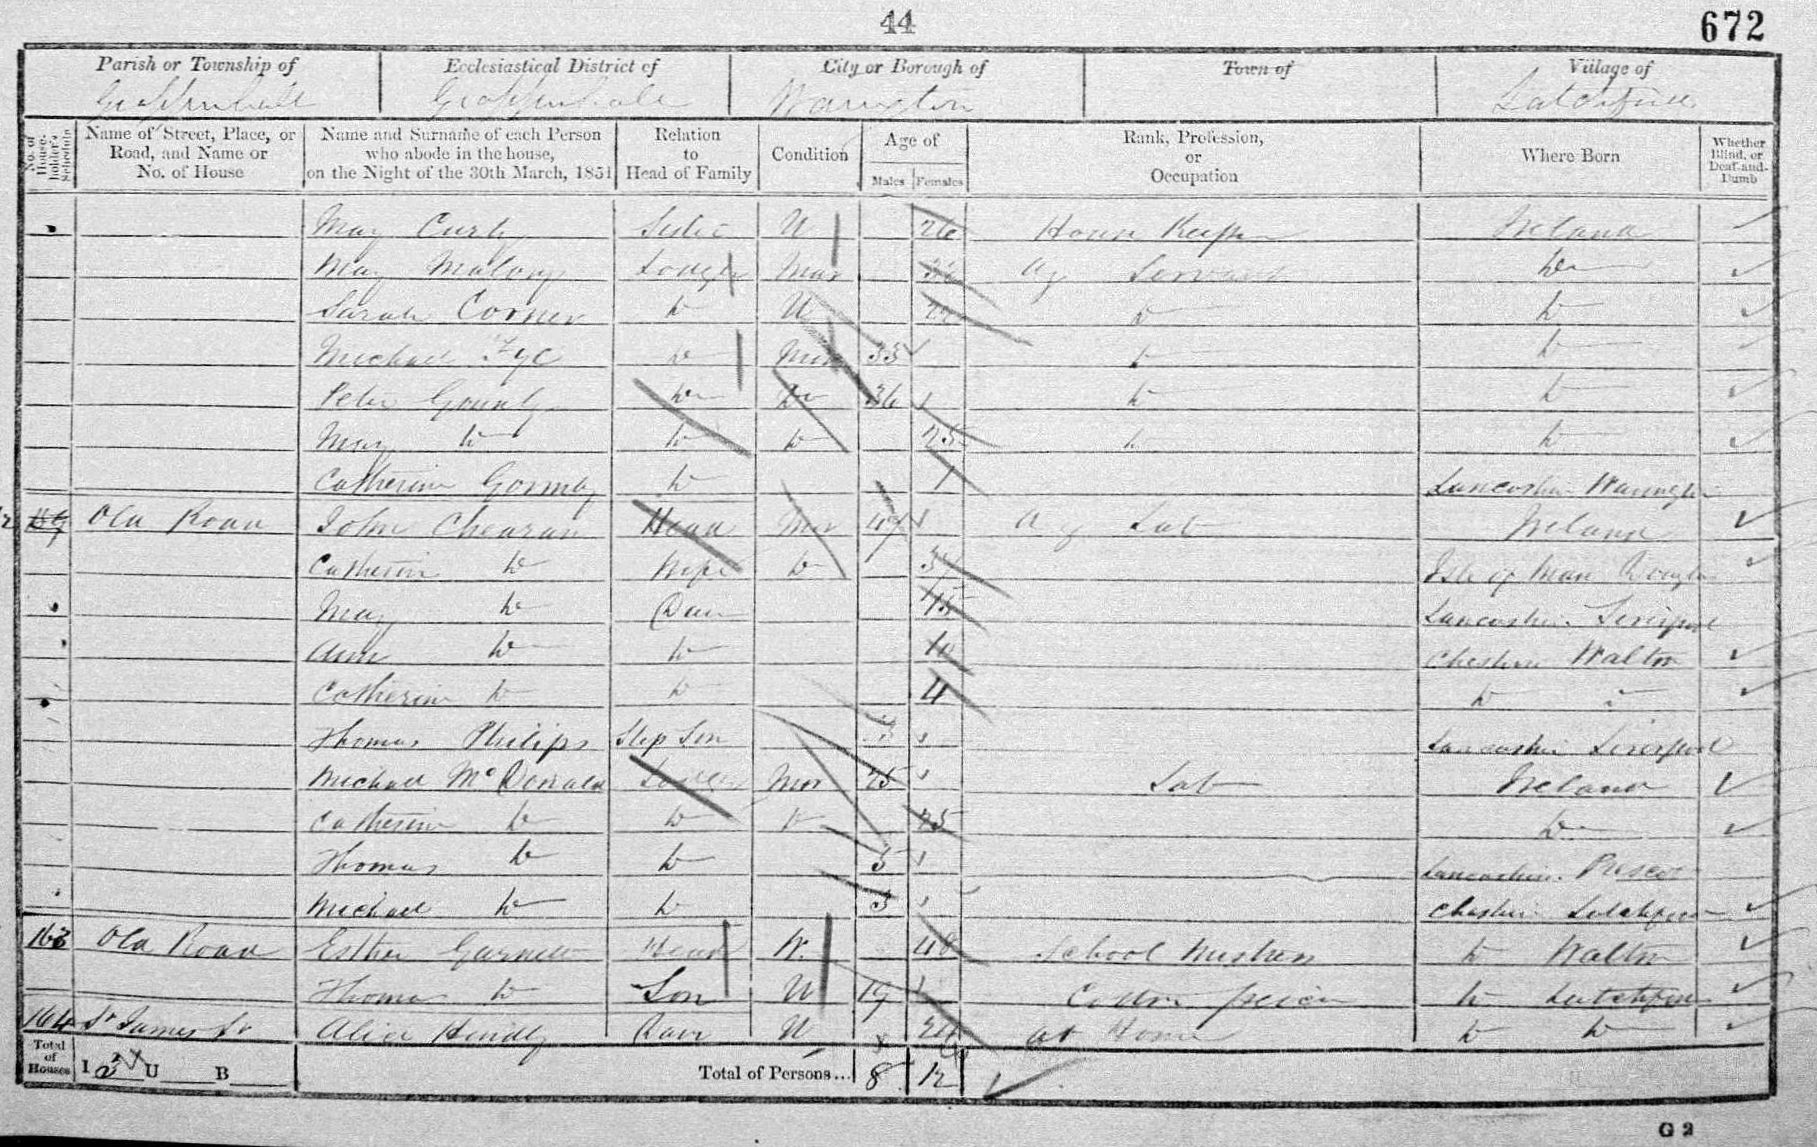 44
672
Parish or Township of Ecclesiastical District of City or Borough of Town of Village of
Grappenhall Grappenhall Warrington Latchford
No. of House-holder's Schedule Name of Street, Place, or Road, and Name or No. of House Name and Surname of each Person who abode in the house, on the Night of the 30th March, 1851 Relation to Head of Family Condition Age of Males Females Rank, Profession, or Occupation Where Born Whether Blind, or Deaf-and-Dumb
May Curly Sister U 26 House Keeper Ireland
May Malory Lodger Mar Ag Servant Do
Sarah Corner Do U 22 Do Do
Michael Do Mar 33 Do Do
Peter Do Do 36 Do Do
May Do Do Do 25 Do Do
Catherine Gormly Do 1 Lancashire Warrington
Old Road John Head Mar 47 Ag Lab Ireland
Catherine Do Wife Do Isle of Man Douglas
May Do Daur 15 Lancashire Liverpool
Ann Do Do 10 Cheshire Walton
Catherine Do Do 4 Do Do
Thomas Philips Step Son Lancashire Liverpool
Michael McDonald Lodger Mar 25 Lab Ireland
Catherine Do Do Do 25 Do
Thomas Do Do 5 Lancashire Prescot
Michael Do Do 3 Cheshire Latchford
163 Old Road Esther Garnett Head W. 48 School Mistress Do Walton
Thomas Do Son U 19 Cotton Do Latchford
164 St James St Alice Hindly Daur U at Home Do Do
Total of Houses I 2 U B Total of Persons... 8 12
G 2